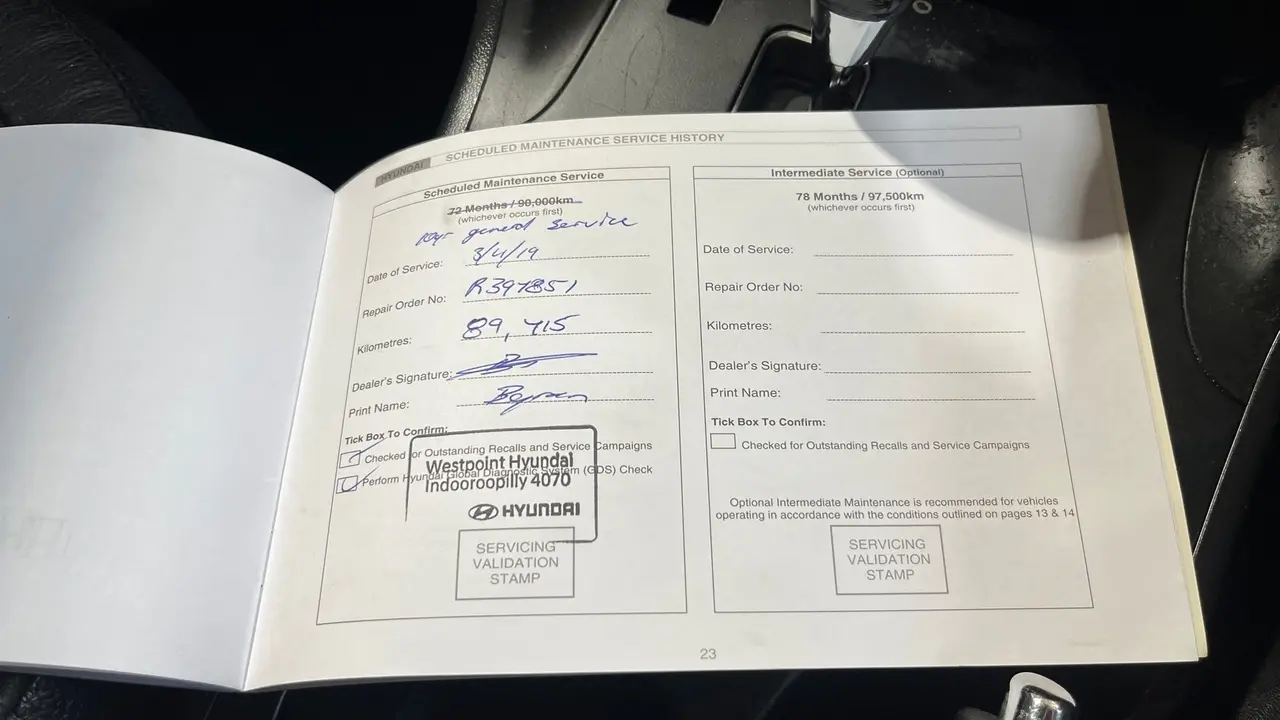 HYUNDAI SCHEDULED MAINTENANCE SERVICE HISTORY
Scheduled Maintenance Service
72 Months / 90,000km
(whichever occurs first)
10yr general service
Date of Service: 3/4/19
Repair Order No: R397851
Kilometres: 89,715
Dealer's Signature:
Print Name:
Tick Box To Confirm:
Checked for Outstanding Recalls and Service Campaigns
Perform Hyundai Global Diagnostic System (GDS) Check
Westpoint Hyundai
Indooroopilly 4070
HYUNDAI
SERVICING
VALIDATION
STAMP
Intermediate Service (Optional)
78 Months / 97,500km
(whichever occurs first)
Date of Service:
Repair Order No:
Kilometres:
Dealer's Signature:
Print Name:
Tick Box To Confirm:
Checked for Outstanding Recalls and Service Campaigns
Optional Intermediate Maintenance is recommended for vehicles
operating in accordance with the conditions outlined on pages 13 & 14
SERVICING
VALIDATION
STAMP
23